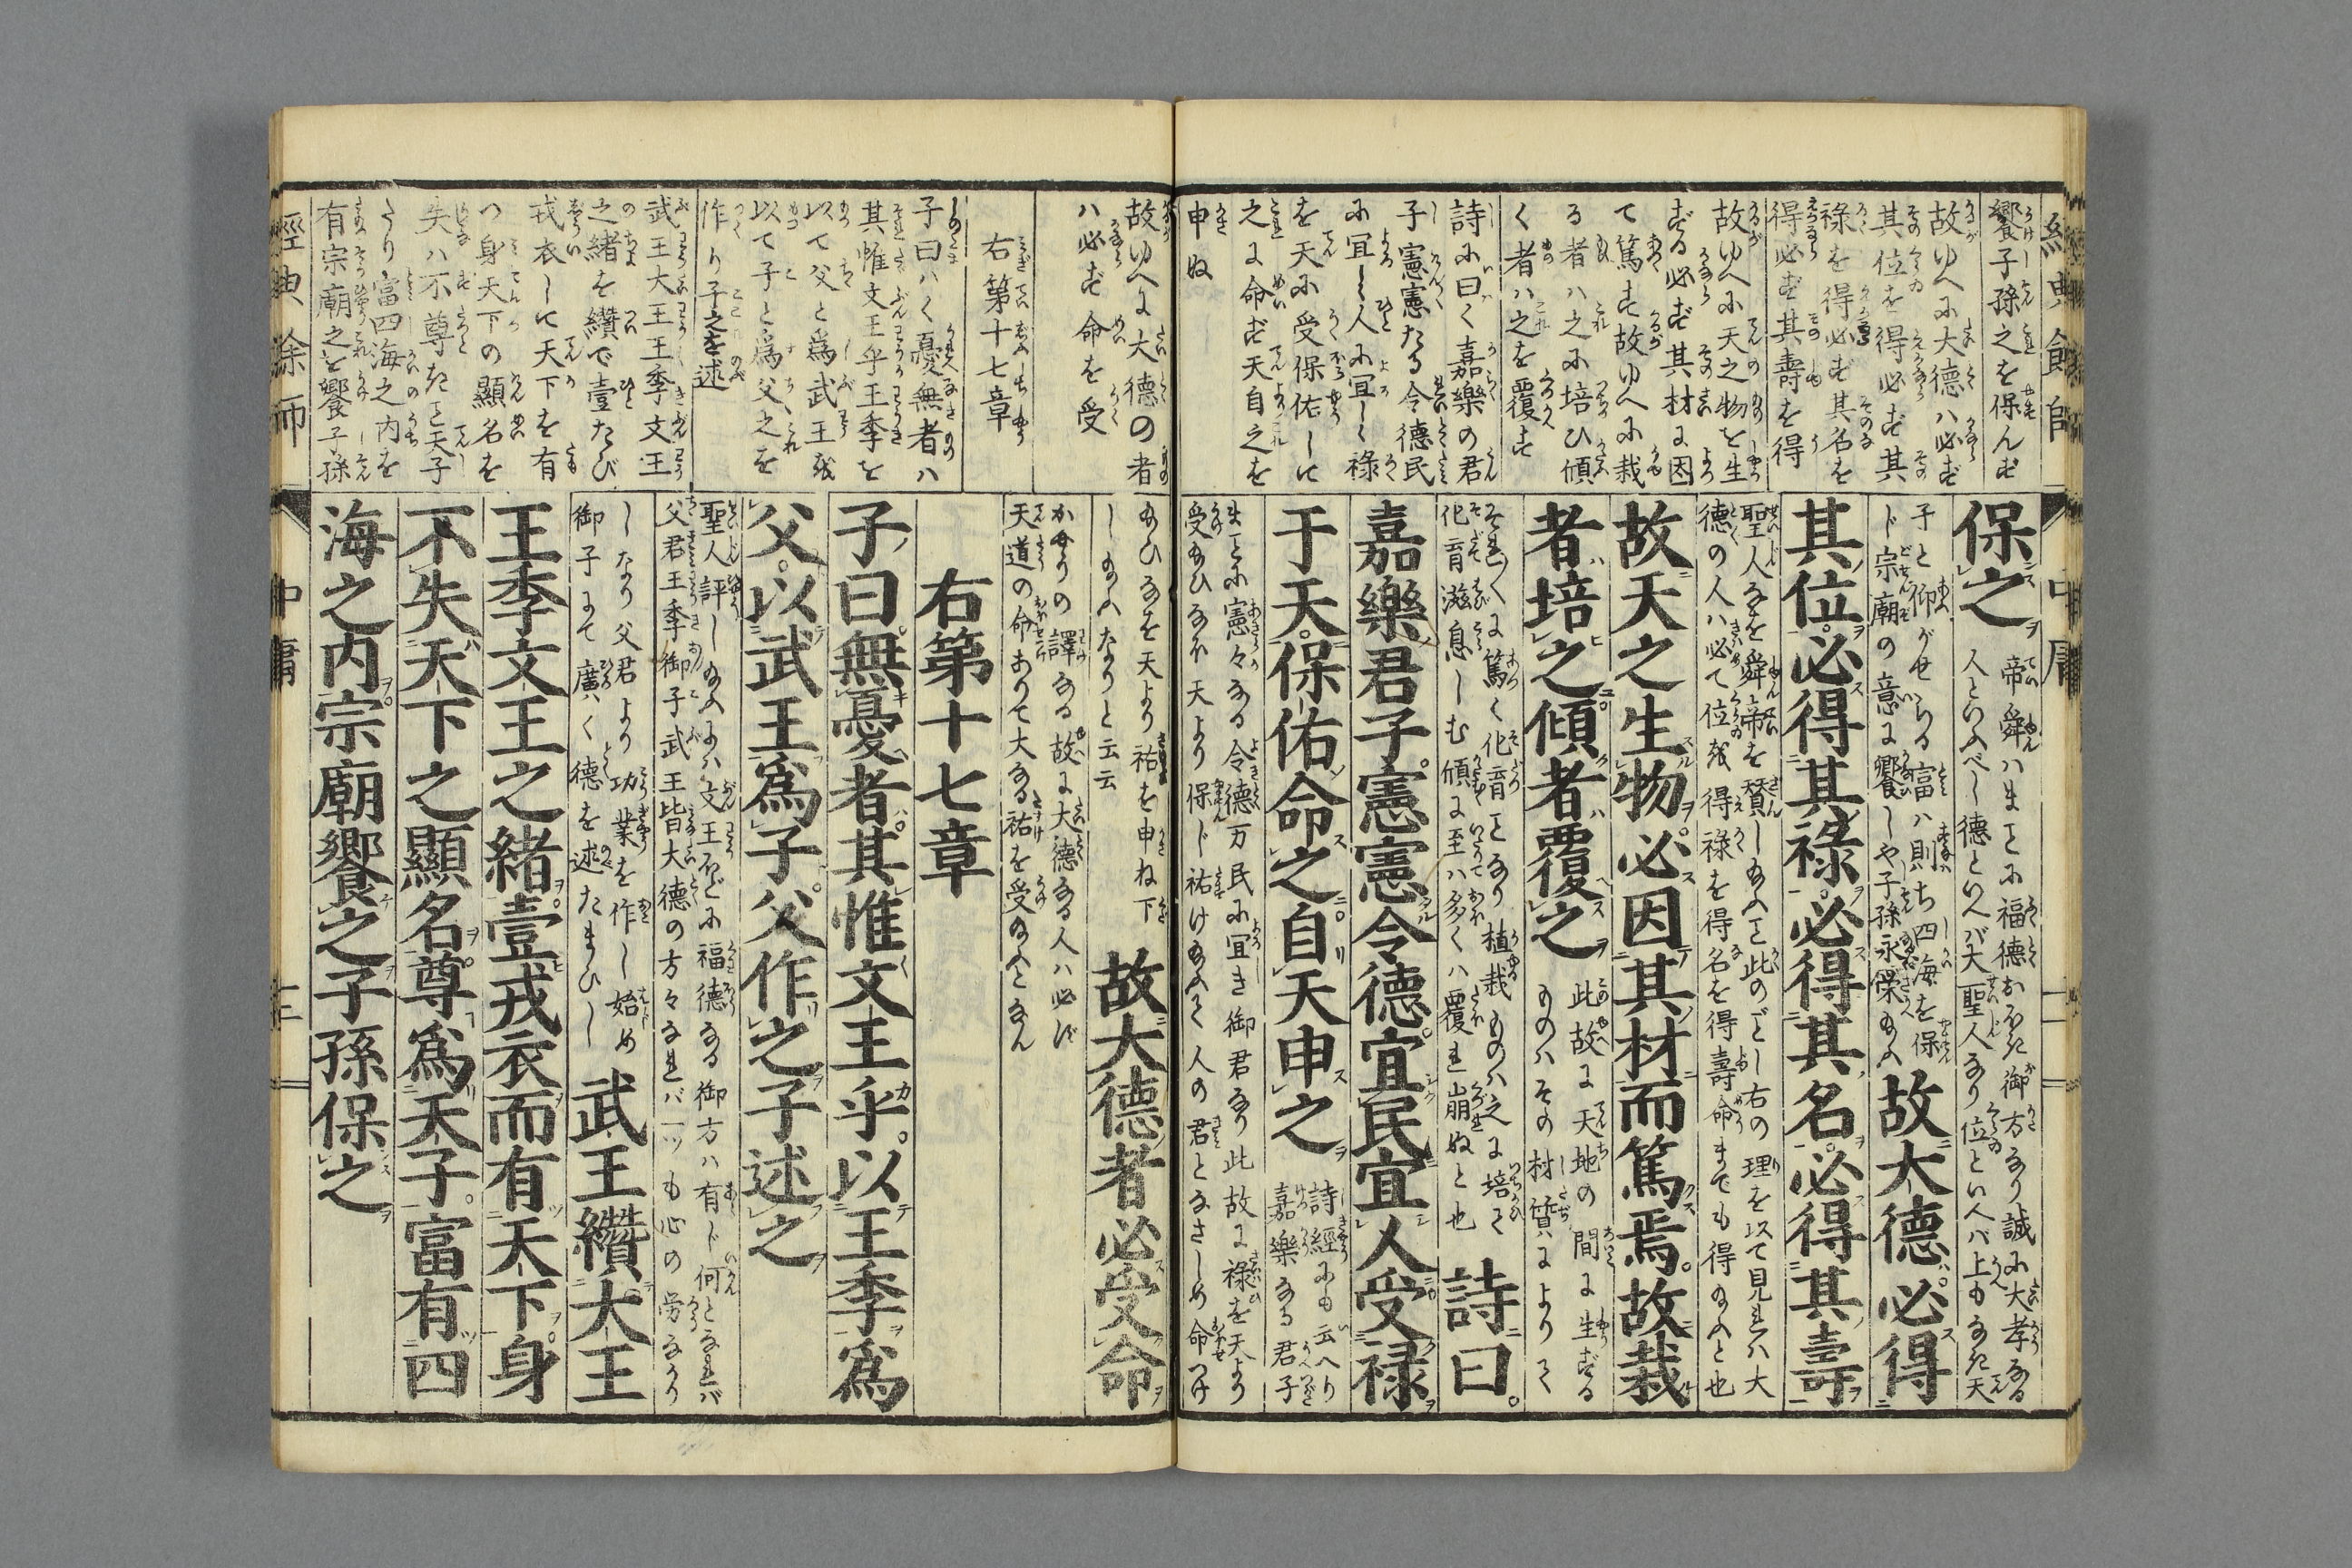 經典餘師
中庸
饗子孫之を保んず
故ゆへに大德ハ必ず
其位を得必ず其
祿を得必ず其名を
得必ず其壽を得
故ゆへに天之物を生
ずる必ず其材に因
て篤す故ゆへに栽
る者ハ之に培ひ傾
く者ハ之を覆す
詩に曰く嘉樂の君
子憲憲たる令德民
に宜し人に宜し祿
を天に受保佑して
之に命ず天自之を
申ぬ
保之
帝舜ハまことに福德
御方なり誠に大孝なる
人といふべし德といへバ大聖人なり位といへバ上もなき天
子と仰がせらる富ハ則ち四海を保
ド宗廟の意に饗しや子孫永榮
故大德必得
其位必得其祿必得其名必得其壽
聖人なを舜帝を贊し給ふこと此のごとし右の理を以て見れハ大
德の人ハ必て位を得祿を得名を得壽命までも得給ふと也
故天之生物必因其材而篤焉故栽
者培之傾者覆之
此故に天地の間に生ずる
ものハその材質によりて
それ〱に篤く化育となり植栽ものハ之に培て
化育滋息しむ傾に至ハ多くハ覆れ崩ぬと也
詩曰
嘉樂君子憲憲令德宜民宜人受祿
于天保佑命之自天申之
詩經にも云へり
嘉樂なる君子
まことに憲々なる令德万民に宜き御君なり此故に祿を天より
受給ひなを天より保ド祐け給ふて人の君となさしめ命つけ
故ゆへに大德の者
ハ必ず命を受
右第十七章
子曰ハく憂無者ハ
其惟文王乎王季を
以て父と爲武王を
以て子と爲父之を
作り子之を述
武王大王王季文王
之緒を纘で壹たび
戎衣して天下を有
つ身天下の顯名を
失ハ不尊きこと天子
たり富四海之内を
有宗廟之を饗子孫
給ひなを天より祐を申ね下
し給ふなりと云云
故大德者必受命
かゝりの譯なる故に大德なる人ハ必ず
天道の命ありて大なる祐を受給ふとなん
右第十七章
子曰無憂者其惟文王乎以王季爲
父以武王爲子父作之子述之
聖人評し給ふにハ文王などに福德なる御方ハ有ド何となれバ
父君王季御子武王皆大德の方々なれバ一ツも心の勞なかり
しなり父君より功業を作し始め
御子にて廣く德を述たまひし
武王纘大王
王季文王之緒壹戎衣而有天下身
不失天下之顯名尊爲天子富有四
海之内宗廟饗之子孫保之
經典餘師
中庸